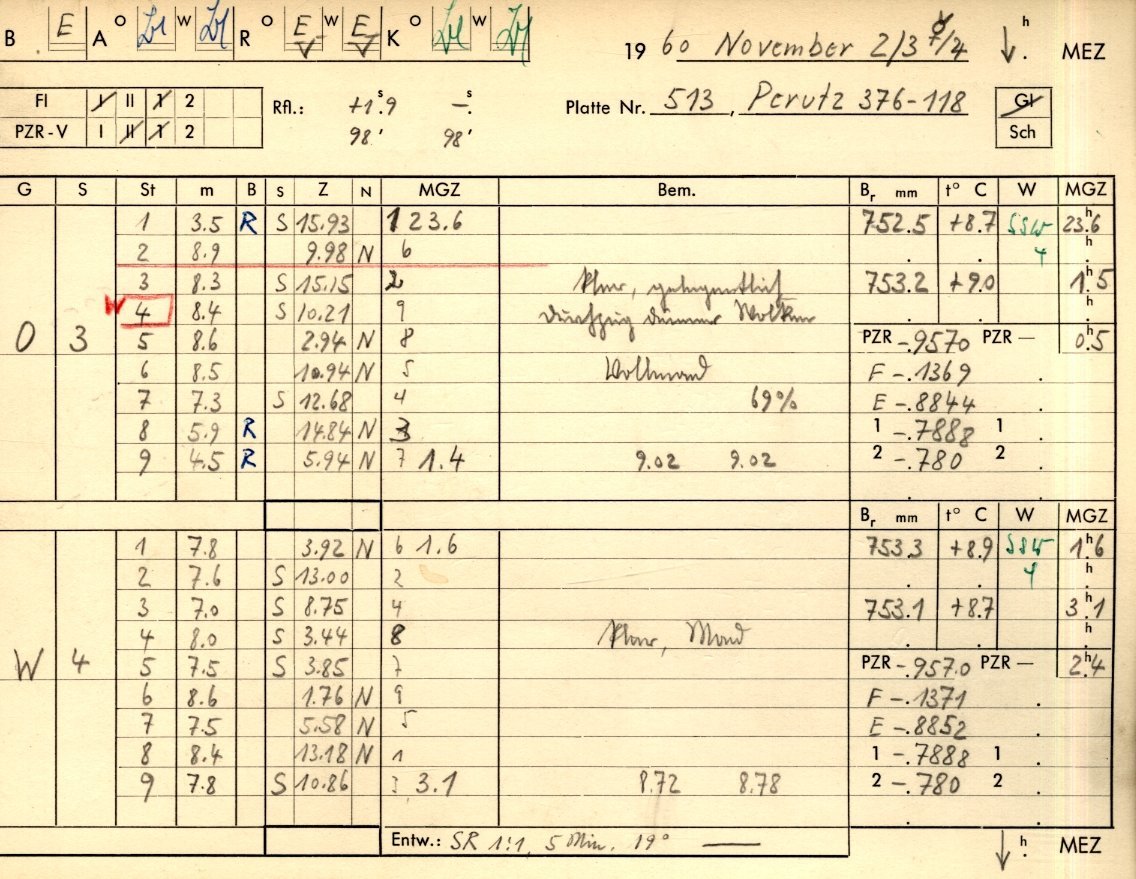 B E A O W R O E W E K O W 19 60 November 2/3 h MEZ
FI I II 1 2 Rfl.: +1ˢ.9 —ˢ. Platte Nr. 513, Perutz 376-118 Gl
PZR-V I II 1 2 98' 98' Sch
G S St m B S Z N MGZ Bem. Bᵣ mm t° C W MGZ
1 3.5 R S 15.93 1 23.6 752.5 +8.7 SSW 23ʰ.6
2 8.9 9.98 N 6 . . 4 h.
3 8.3 S 15.15 2 klar, gelegentlich 753.2 +9.0 1ʰ.5
W 4 8.4 S 10.21 9 Durchzug dünner Wolken . . h.
O 3 5 8.6 2.94 N 8 PZR -.9570 PZR — 0ʰ.5
6 8.5 10.94 N 5 Vollmond F -.1369 .
7 7.3 S 12.68 4 69% E -.8844 .
8 5.9 R 14.84 N 3 1 -.7888 1 .
9 4.5 R 5.94 N 7 1.4 9.02 9.02 2 -.780 2 .
Bᵣ mm t° C W MGZ
1 7.8 3.92 N 6 1.6 753.3 +8.9 SSW 1ʰ.6
2 7.6 S 13.00 2 . . 4 h.
3 7.0 S 8.75 4 753.1 +8.7 3ʰ.1
4 8.0 S 3.44 8 klar, Mond . . h.
W 4 5 7.5 S 3.85 7 PZR -.957.0 PZR — 2ʰ.4
6 8.6 1.76 N 9 F -.1371 .
7 7.5 5.58 N 5 E -.8852 .
8 8.4 13.18 N 1 1 -.7888 1 .
9 7.8 S 10.86 3.1 8.72 8.78 2 -.780 2 .
Entw.: SR 1:1, 5 Min. 19° — h. MEZ